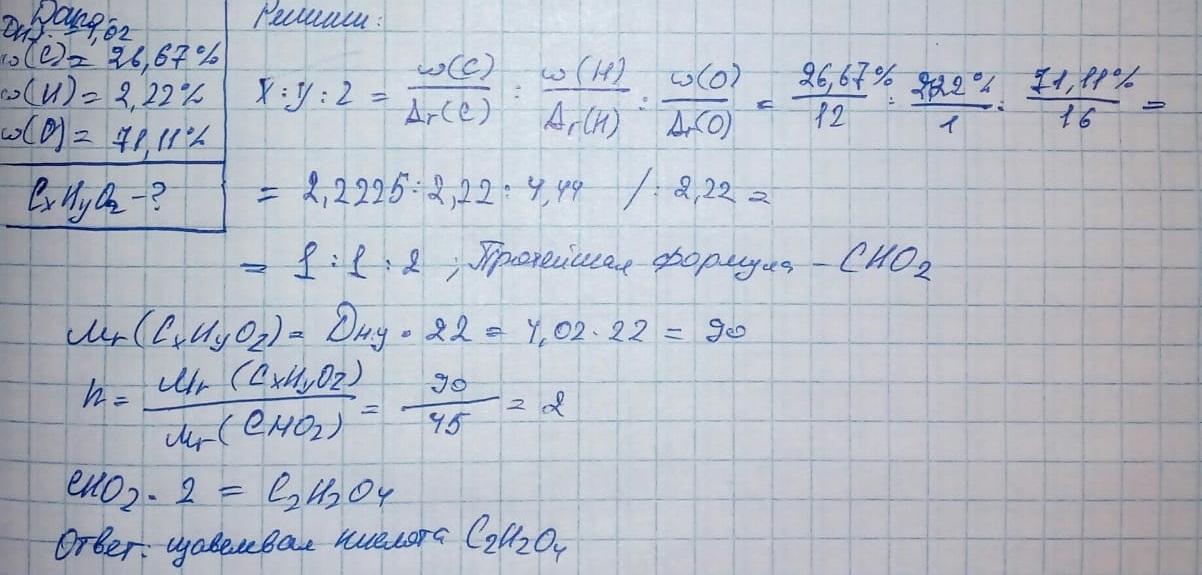 Дано: Решение:
Dн.у. = 4,02
ω(C) = 26,67%
ω(H) = 2,22%
ω(O) = 71,11%
CxHyOz - ?
X : y : z = ω(C)/Ar(C) : ω(H)/Ar(H) : ω(O)/Ar(O) = 26,67%/12 : 2,22%/1 : 71,11%/16 =
= 2,2225 : 2,22 : 4,44 / : 2,22 =
= 1 : 1 : 2 ; Простейшая формула - CHO₂
Mr(CxHyOz) = Dн.у • 22 = 4,02 • 22 = 90
n = Mr (CxHyOz)/Mr (CHO₂) = 90/45 = 2
CHO₂ • 2 = C₂H₂O₄
Ответ: щавелвая кислота C₂H₂O₄